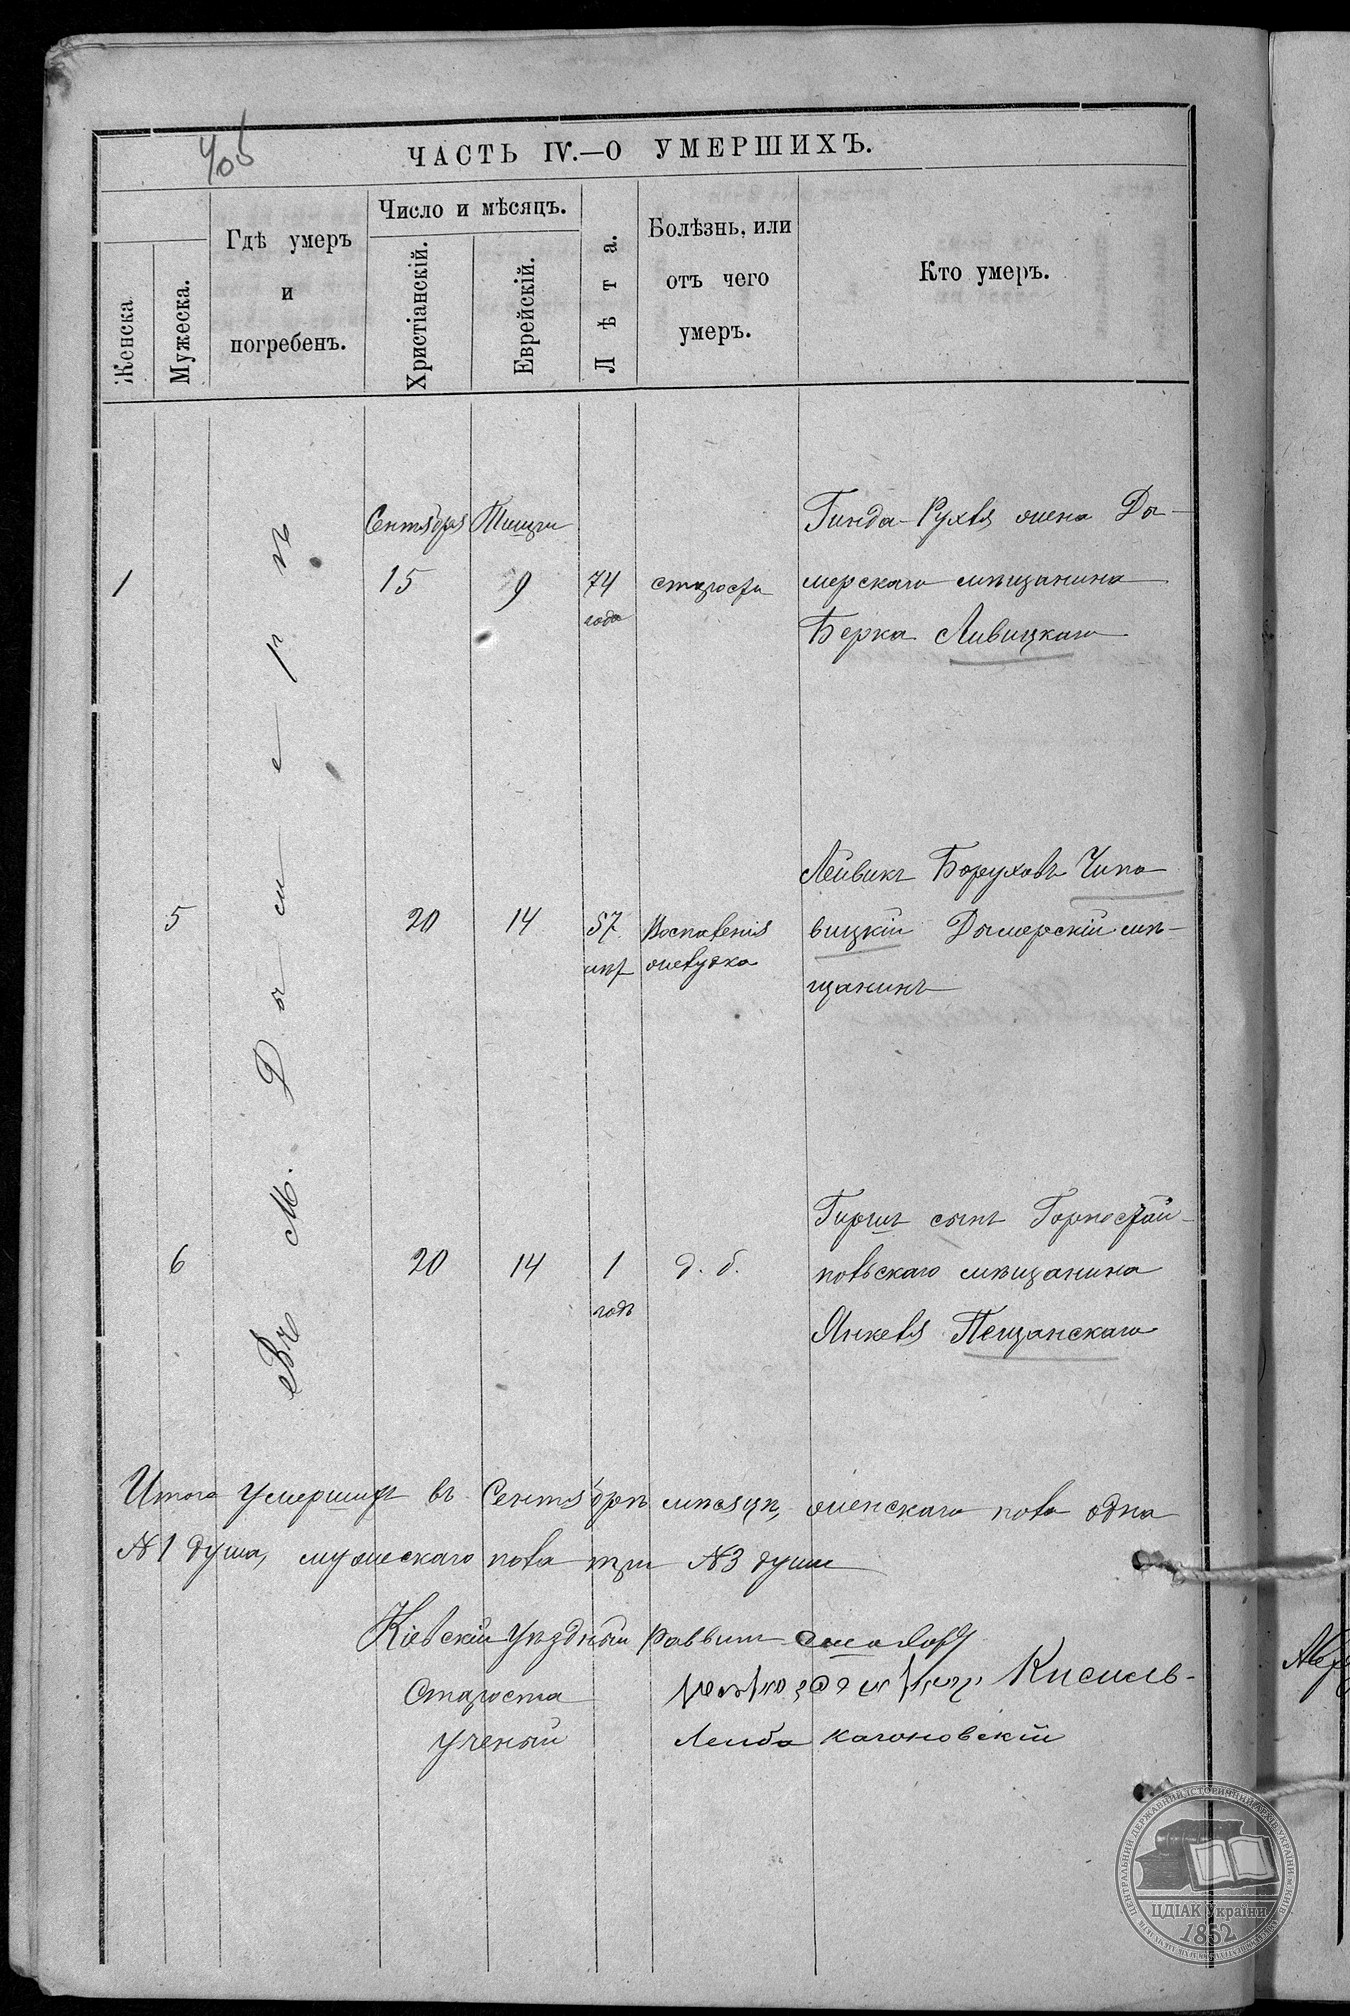 405
ЧАСТЬ IV.—О УМЕРШИХЪ.
Женска
Мужеска.
Гдѣ умеръ
и
погребенъ.
Число и мѣсяцъ.
Христіанскій.
Еврейскій.
Лѣта.
Болѣзнь, или
отъ чего
умеръ.
Кто умеръ.
Въ М. Дымерѣ
Сентября Тишри
1 15 9 74 года старости
Гинда-Рухля жена Ды-
мерскаго мѣщанина
Берка Ливицкаго
5 20 14 57 лѣт
Воспаленія
желудка
Лейвикъ Боруховъ Чипо
вицкій Дымерскій мѣ-
щанинъ
6 20 14 1 годъ д. б.
Гиршъ сынъ Горностай-
польскаго мѣщанина
Янкеля Пещанскаго
Итого умершихъ въ Сентябрѣ мѣсяцѣ, женскаго пола одна
№1 душа, мужескаго пола три №3 души
Кіевскій уѣздный Раввинъ
Староста Кисиль-
Ученый Леиба Кагановскій
ЦЕНТРАЛЬНИЙ ДЕРЖАВНИЙ ІСТОРИЧНИЙ АРХІВ УКРАЇНИ, М. КИЇВ
ЦДІАК України
1852